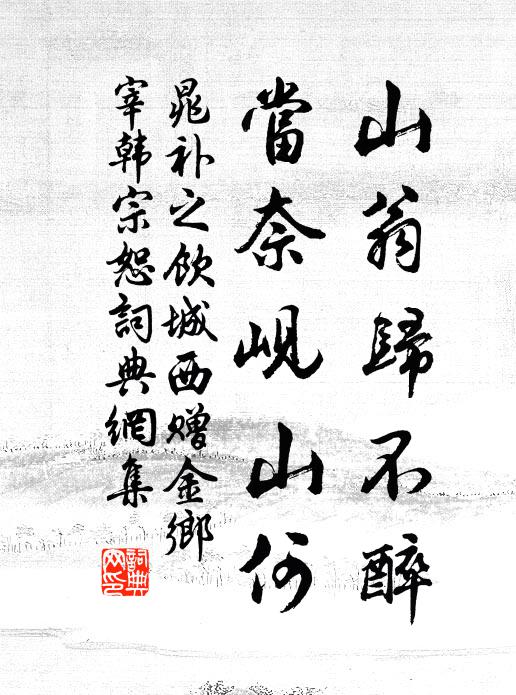 山翁歸不醉
當奈峴山何
晁补之飲城西贈金鄉
宰韩宗恕詞典網集
詞典
网印